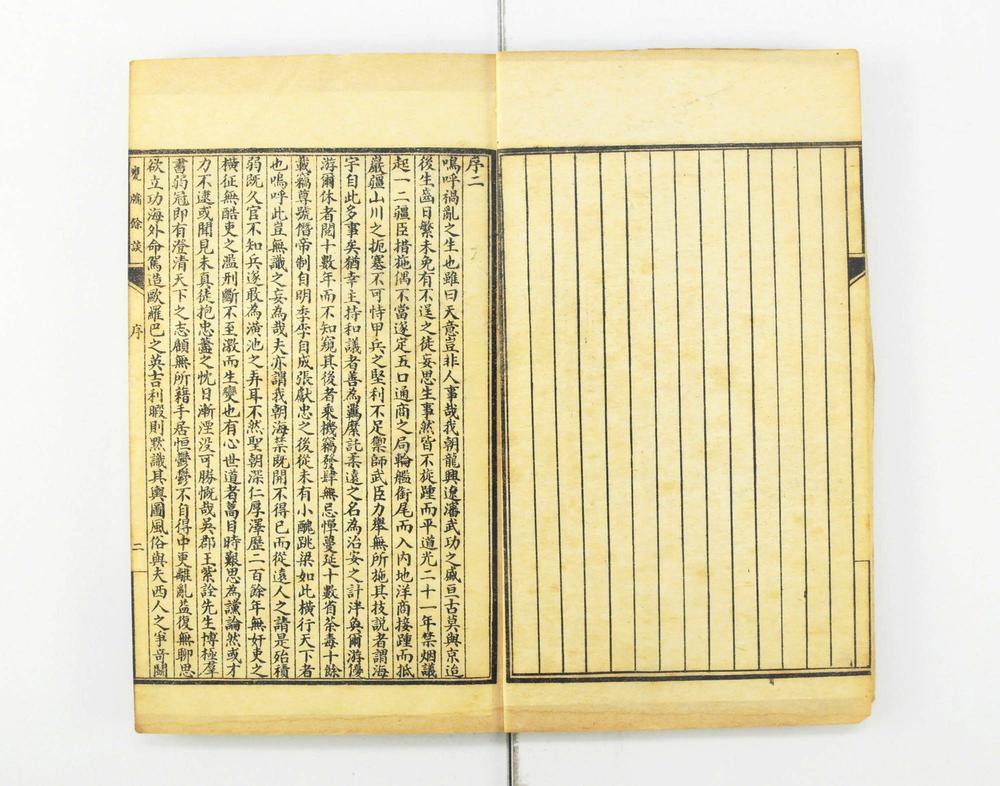 序二
嗚呼禍亂之生也雖曰天意豈非人事哉我朝龍興遼瀋武功之盛亘古莫與京迨
後生齒日繁未免有不逞之徒妄思生事然皆不旋踵而平道光二十一年禁烟議
起一二疆臣措施偶不當遂定五口通商之局輪艦銜尾而入內地洋商接踵而抵
嚴疆山川之扼塞不可恃甲兵之堅利不足禦師武臣力舉無所施其技說者謂海
宇自此多事矣猶幸主持和議者善為羈縻託柔遠之名為治安之計泮奐爾游優
游爾休者閱十數年而不知窺其後者乘機竊發肆無忌憚蔓延十數省荼毒十餘
載竊尊號僭帝制自明季李自成張獻忠之後從未有小醜跳梁如此橫行天下者
也嗚呼此豈無識之妄為哉夫亦謂我朝海禁既開不得已而從遠人之請是殆積
弱既久官不知兵遂敢為潢池之弄耳不然聖朝深仁厚澤歷二百餘年無奸吏之
橫征無酷吏之濫刑斷不至激而生變也有心世道者蒿目時艱思為讜論然或才
力不逮或聞見未真徒抱忠藎之忱日漸湮没可勝慨哉吳郡王紫詮先生博極羣
書弱冠即有澄清天下之志顧無所藉手居恒鬱鬱不自得中更離亂益復無聊思
欲立功海外命駕造歐羅巴之英吉利暇則默識其輿圖風俗與夫西人之寧音闗
甕牖餘談
序
二